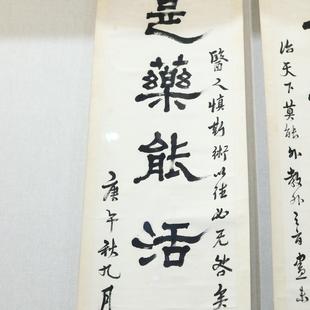 治天下莫能外教外
醫之慎斯術以往必无咎矣
是藥能活
庚午秋九月